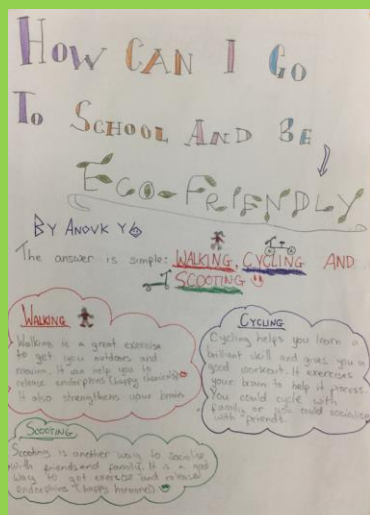 HOW CAN I GO
TO SCHOOL AND BE
ECO-FRIENDLY
BY ANOUK Y6
The answer is simple: WALKING, CYCLING AND
SCOOTING
WALKING
Walking is a great exercise
to get you outdoors and
moving. It can help you to
release endorphins (happy chemicals)
It also strengthens your brain
CYCLING
Cycling helps you learn a
brilliant skill and gives you a
good workout. It exercises
your brain to help it process.
You could cycle with
family or you could socialise
with friends.
SCOOTING
Scooting is another way to socialise
with friends and family. It is a good
way to get exercise and release
endorphins (happy hormones)